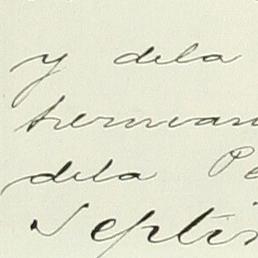 y dela
herman
dela Pe
Septi